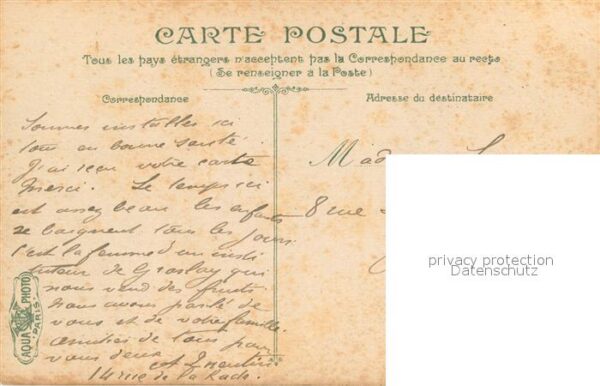 CARTE POSTALE
Tous les pays étrangers n'acceptent pas la Correspondance au recto
(Se renseigner à la Poste)
Correspondance
Adresse du destinataire
Sommes installés ici
tous en bonne santé.
J'ai reçu votre carte
merci. Le temps ici
est assez beau les enfants
se baignent tous les jours.
C'est la femme d'un insti
tuteur de Groslay qui
nous vend des fruits
nous avons parlé de
vous et de votre famille.
amitiés de tous pour
vous deux
14 rue de la Rade.
8 rue
AQUA PHOTO
PARIS
privacy protection
Datenschutz